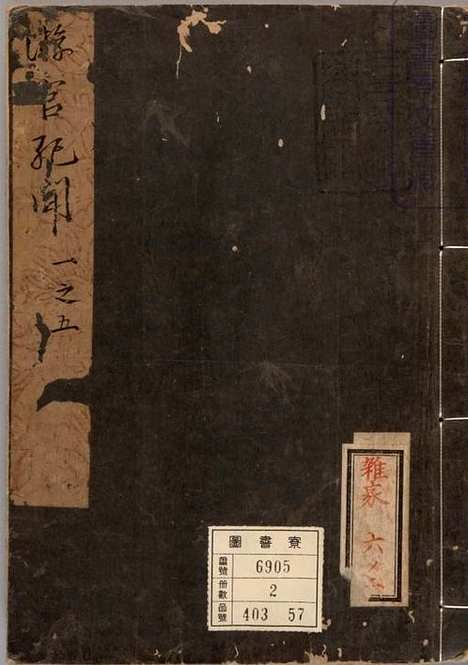 游宦紀聞 一之五
雜家
六ノ
圖書寮
番號 6905
册數 2
函號 403 57